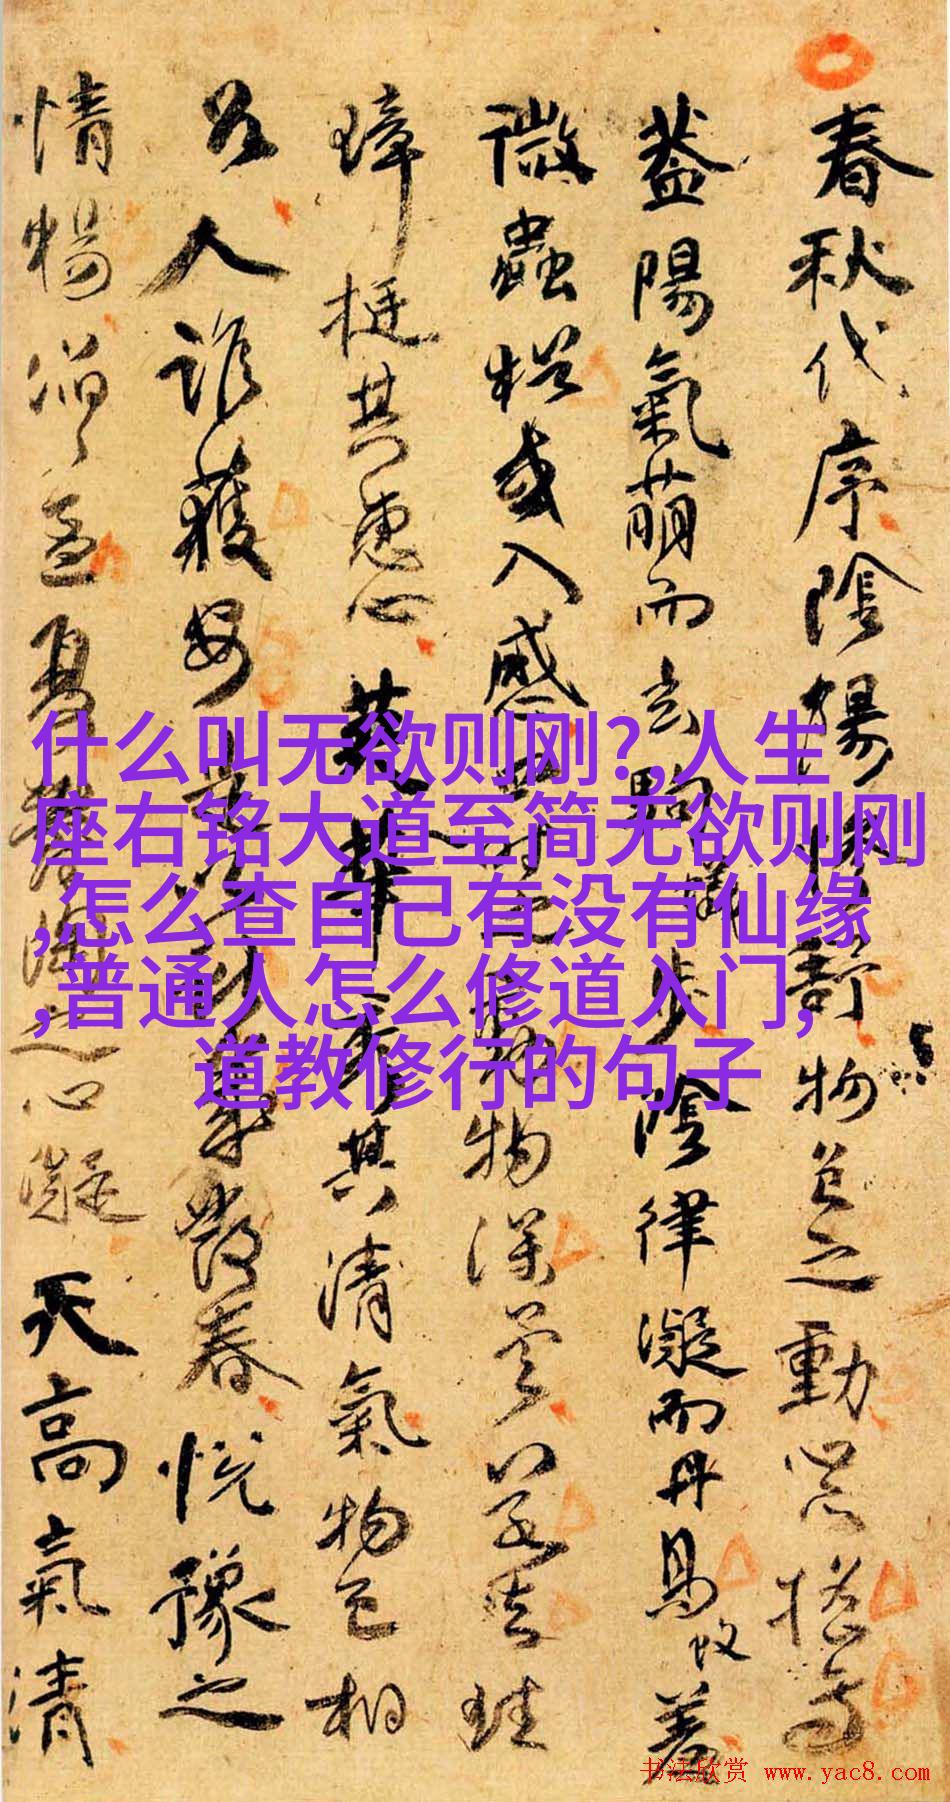 春秋代序陰陽慘舒物色之動心亦搖焉
蓋陽氣萌而玄駒蟻步陰律凝而丹鳥蚊羞
微蟲猶或入感四時之動物深矣若夫珪
璋挺其惠心英華秀其清氣物色相
召人誰獲安是以獻歲發春悅豫之
情暢滔滔孟夏鬱陶之心凝天高氣清
什么叫无欲则刚?.,人生
座右铭大道至简无欲则刚
,怎么查自己有没有仙缘
,普通人怎么修道入门,
道教修行的句子
书法欣赏 www.yac8.com